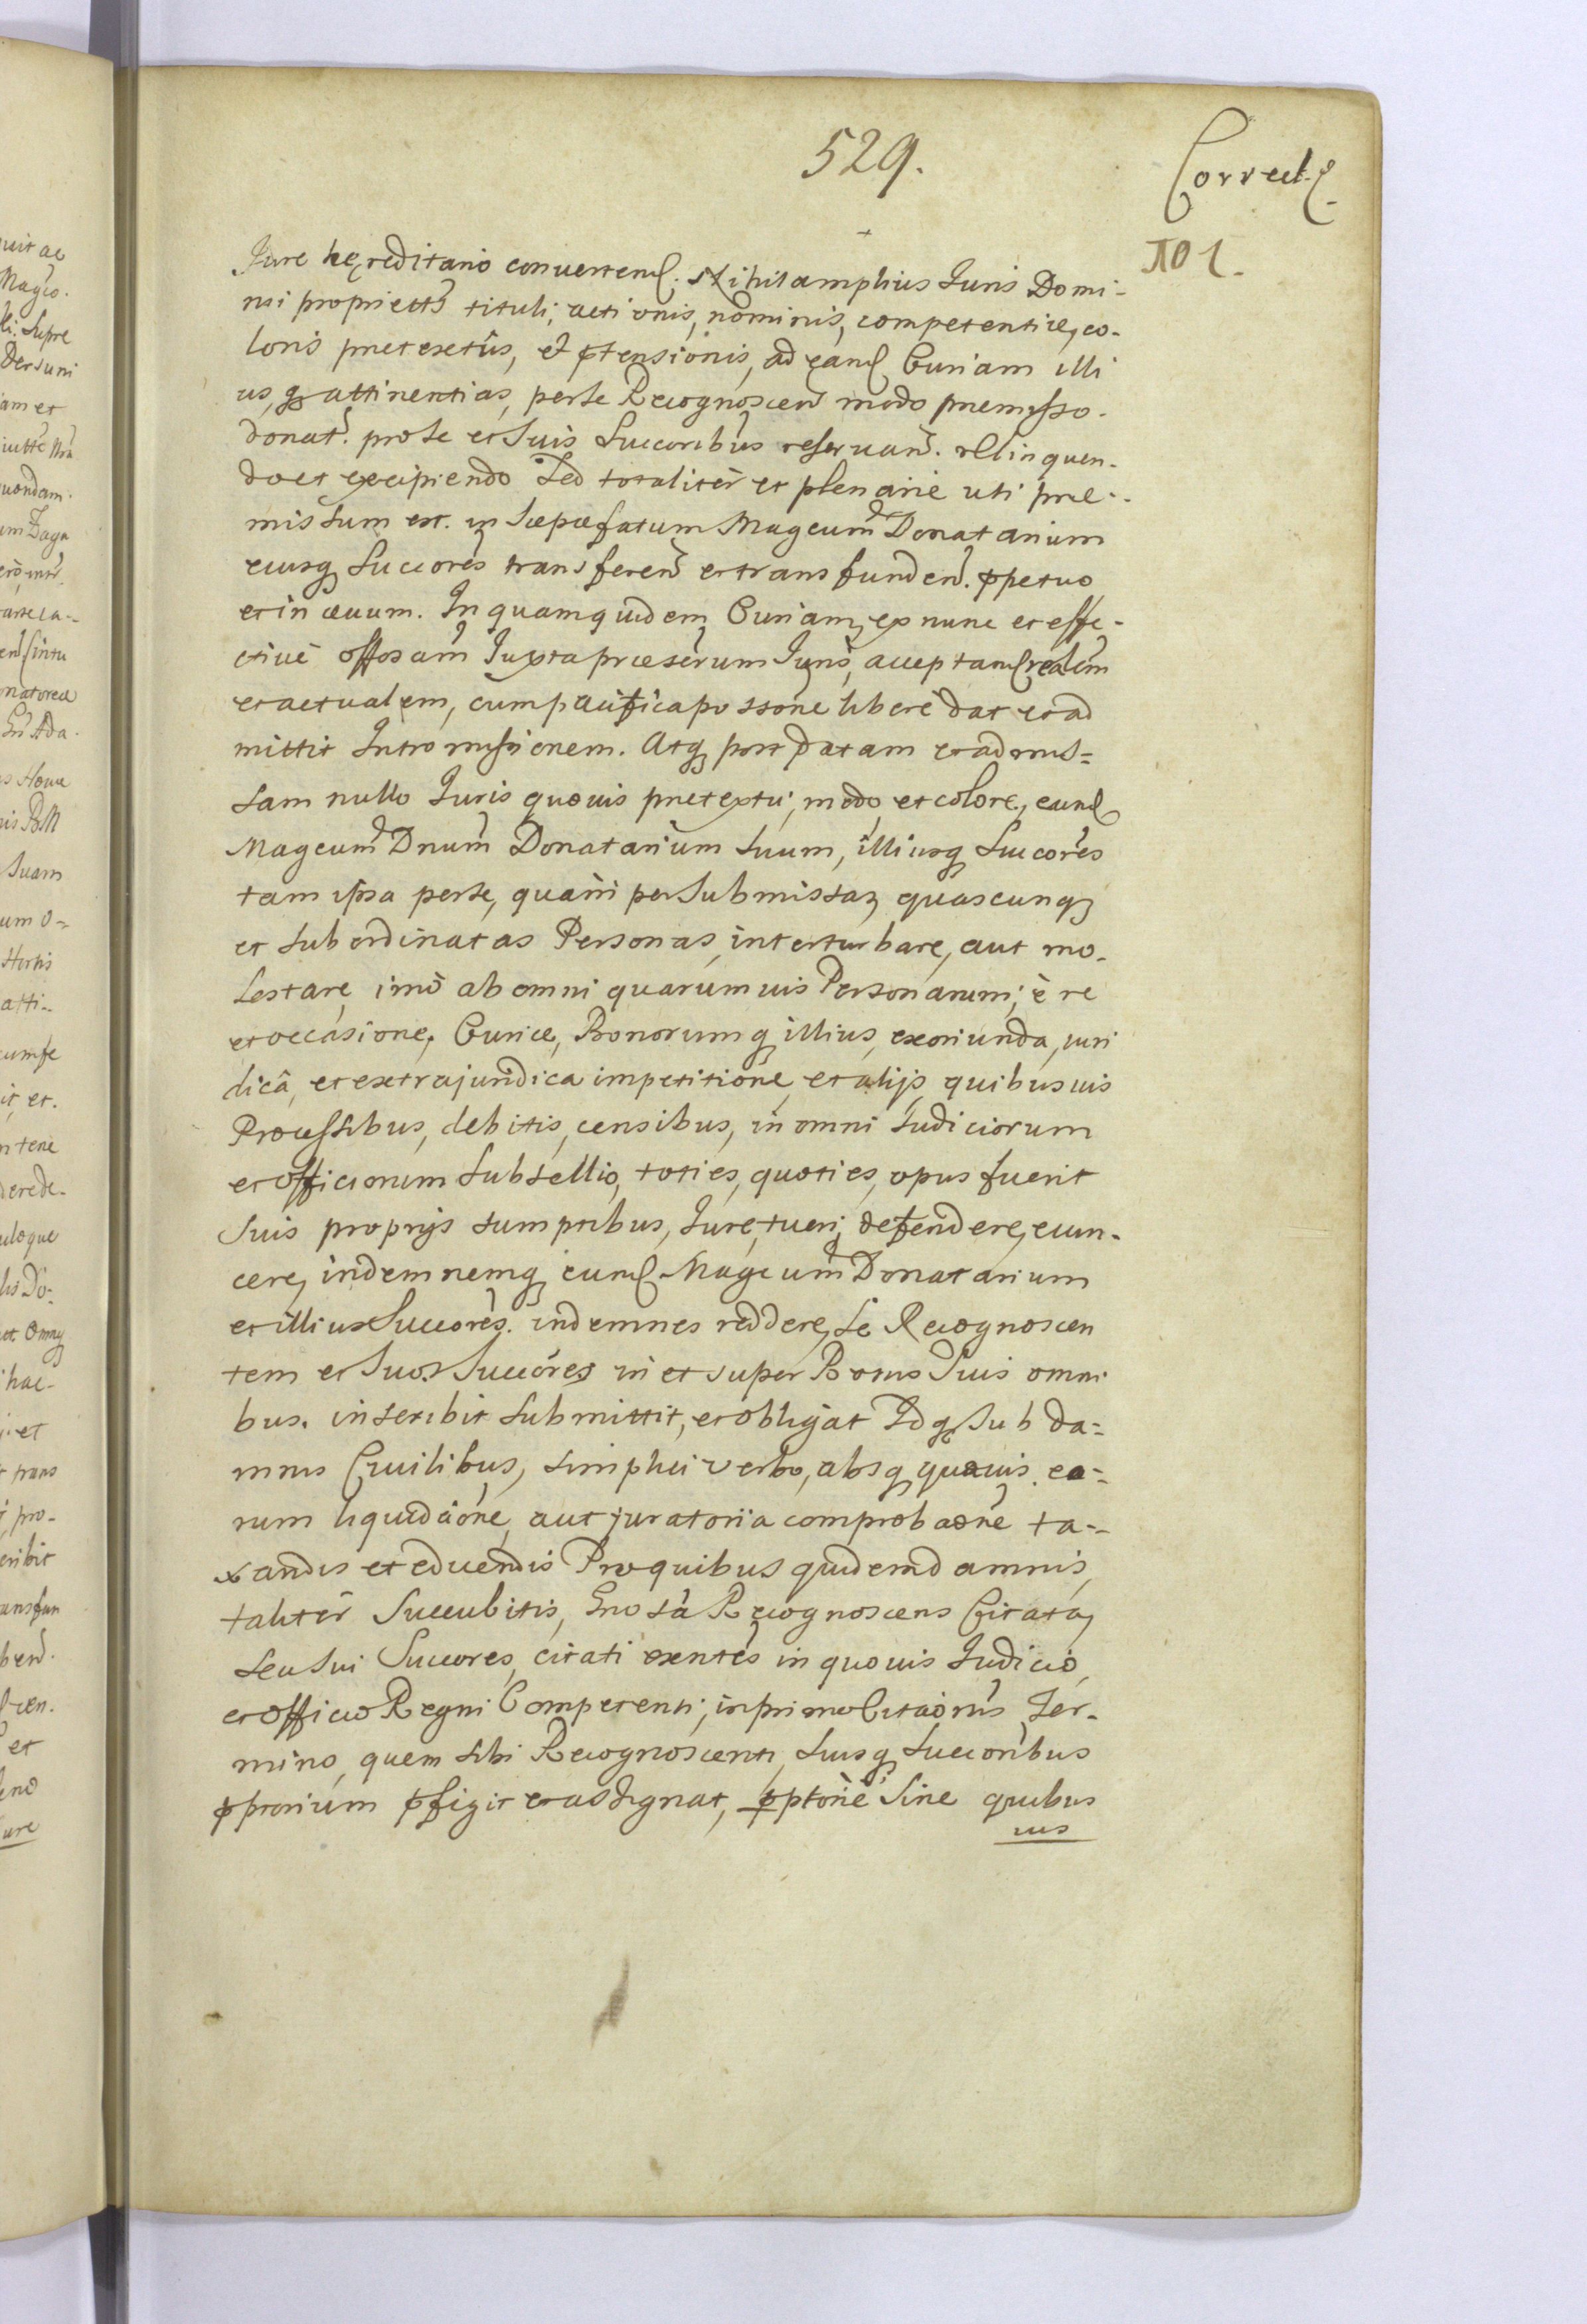 529.
Correct
701.
Jure hęreditario conuertend. Nihil amplius Juris Domi-
nii propriettis tituli, actionis, nominis, competentiæ, co-
loris prætextûs, et ptensionis, ad eand Curiam illi
us, q attinentias, per se Recognoscen modo præmisso.
donat. pro se et suis Succoribus reseruan. relinquen-
do et excipiendo Sed totaliter et plenarie uti præ-
missum est. in sæpæfatum Magcum Donatarium
eiusq Succores transferen et transfunden. ppetuo
et in æuum. In quam quidem Curiam, ex nunc et effe-
ctiue offosam Juxta præserum Juris, acceptam realem
et actualem, cum pacifica possone libere dat et ad
mittit Intromissionem. Atq post datam et admis-
sam nullo Juris quouis prætextu, modo, et colore, eund
Magcum Dnum Donatarium suum, illiusq Succores
tam ipsa per se, quam per submissas quascunq
et subordinatas Personas, interturbare, aut mo-
lestare, imo ab omni quarumuis Personarum, è re
et occasione, Curiæ, Bonorumq illius, exoriunda, iuri
dicâ, et extrajuridica impetitione, et alijs quibusuis
Processibus, debitis, censibus, in omni Judiciorum
et officiorum Subsellio, toties, quoties, opus fuerit
suis proprijs sumptibus, Jure, tueri, defendere, euin-
cere, indemnemq eund Magcum Donatarium
et illius Succores. indemnes reddere, se Recognoscen
tem et suos Succores in et super Bonis suis omni
bus. inscribit submittit, et obligat Idq sub da-
mnis Ciuilibus, simplici verbo, absq quauis ea-
rum liquidaone, aut juratoria comprobaone ta-
xandis et educendis Pro quibus quidem damnis,
taliter Succubitis, Recognoscens Citata,
seu sui Succores, citati exentes in quouis Judicio,
et officio Regni Competenti, in primo Citaonis Ter-
mino, quem sibi Recognoscenti, suisq succoribus
pfigit et assignat, pptorie sine quibus
uis